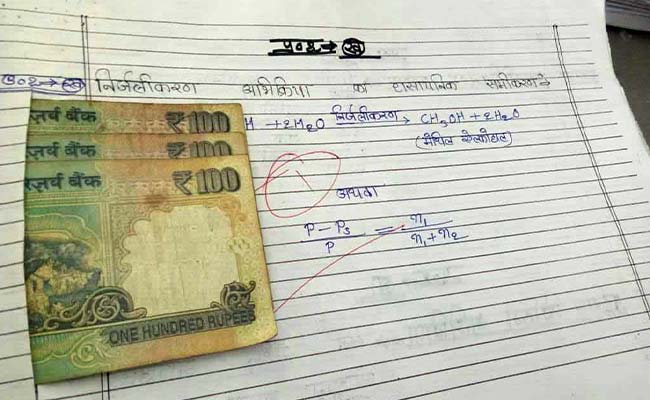 प्र०२→ ख
प्र०२→ ख निर्जलीकरण अभिक्रिया का रासायनिक समीकरण है
H + 2H2O निर्जलीकरण → CH3OH + 2H2O
(मेथिल ऐल्कोहॉल)
अथवा
P – Ps / P = n1 / n1 + n2
ज़र्व बैंक ₹100
ज़र्व बैंक ₹100
ज़र्व बैंक ₹100
ONE HUNDRED RUPEES